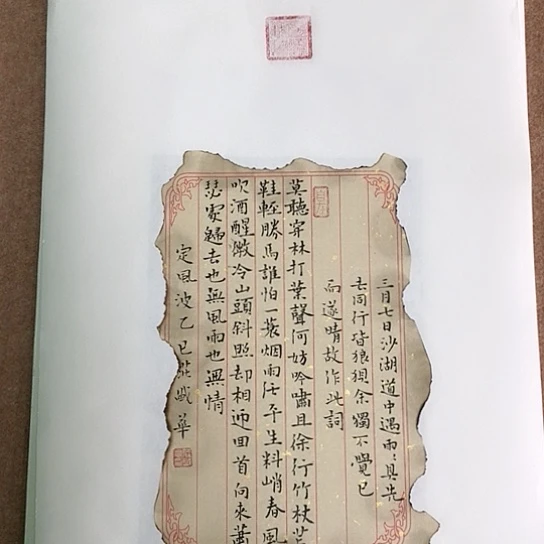 三月七日沙湖道中遇雨〻具先
去同行皆狼狽余獨不覺已
而遂晴故作此詞
莫聽穿林打葉聲何妨吟嘯且徐行竹杖芒
鞋輕勝馬誰怕一蓑烟雨任平生料峭春風
吹酒醒微冷山頭斜照却相迎回首向來蕭
瑟處歸去也無風雨也無情
定風波乙巳華